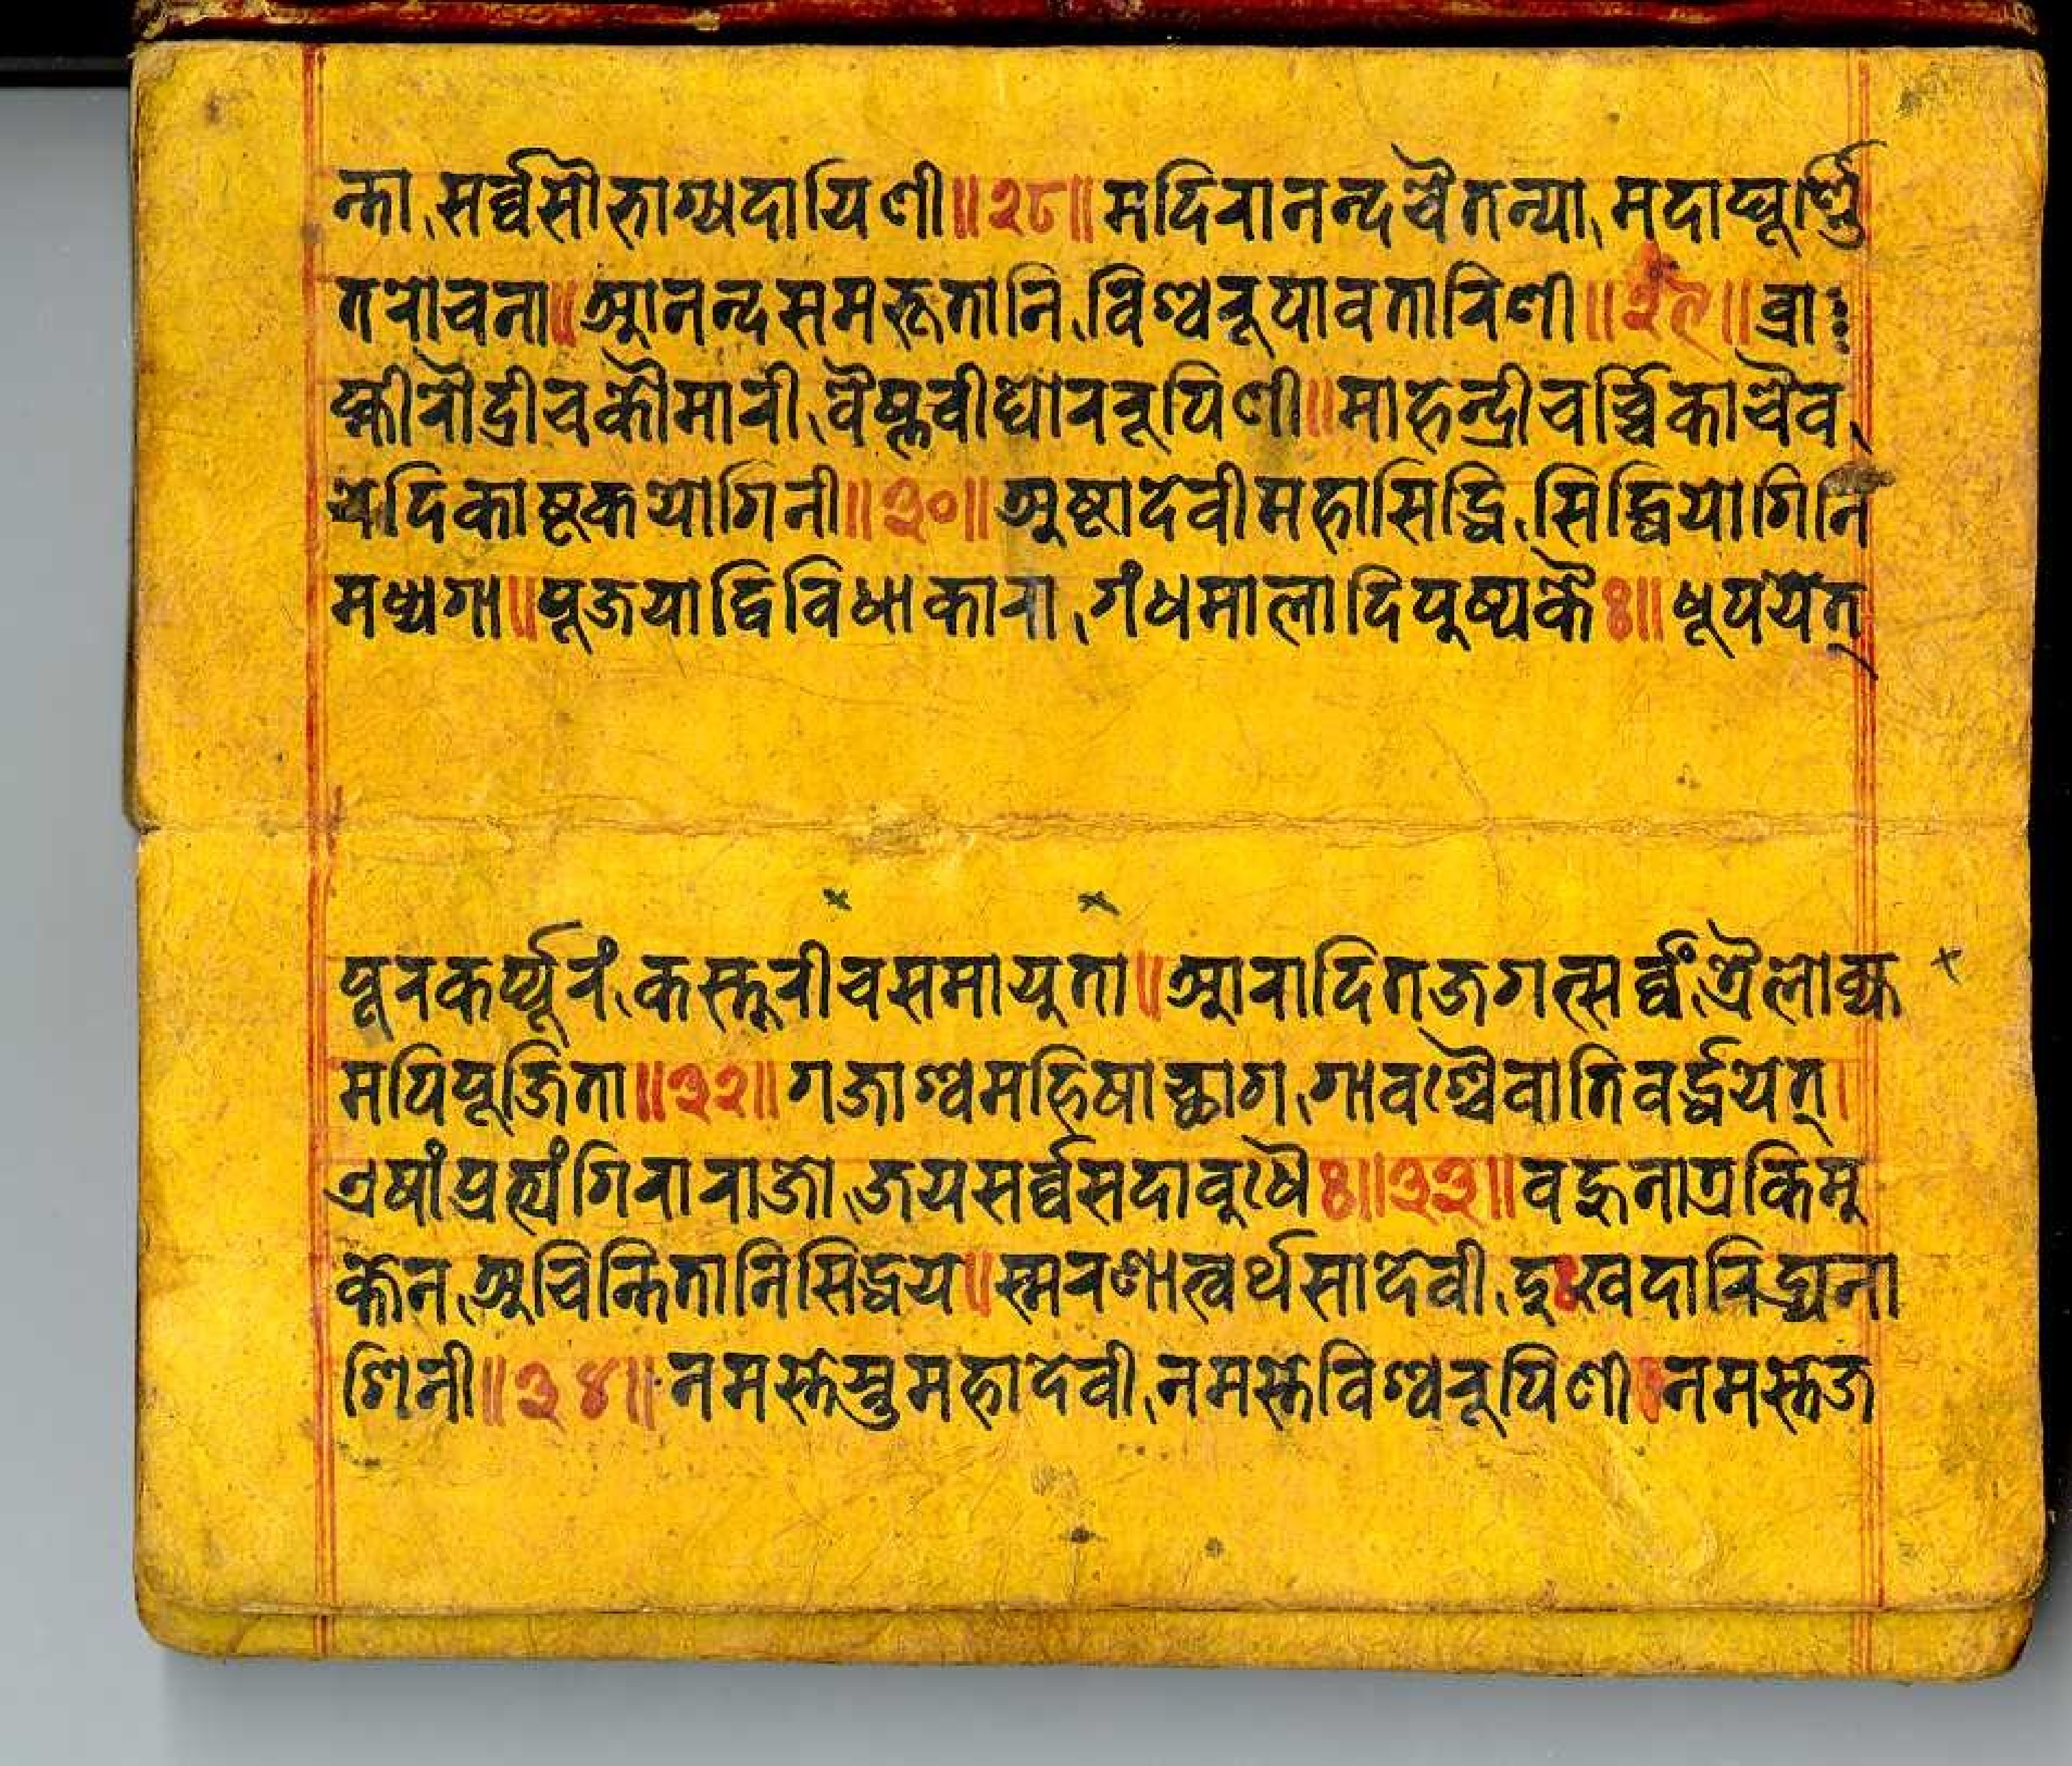 न्ता, सर्व्वसौभाग्यदायिणी॥२८॥मदिरानन्दचैतन्या, मदाघूर्ण्णि
तरोचना॥आनन्दसमरूतानि, विश्वरूपावतारिणी॥२९॥ब्रा
ह्मीरौद्रीचकौमारी, वैष्णवीघोररूपिणी॥माहेन्द्रीचर्च्चिकाचैव,
येदिकाष्टकयोगिनी॥३०॥अष्टादेवीमहासिद्धि, सिद्धियोगिनि
मध्यगा॥पूजयाद्विविधाकारा, गंधमालादिपुष्पकै॥धूपयेत्
पूरकर्प्पूरं, कस्तूरीचसमायुता॥आरादितजगत्सर्व्वं, त्रैलोक्य
मपिपूजिता॥३२॥गजाश्वमहिषाच्छाग, गावश्चैवातिवर्द्धयेत्।
एषांप्रत्यंगिराराजो, जयसर्व्वसदावुधैः॥३३॥वहुनात्रकिमु
क्तेन, अचिन्तितानिसिद्धय॥स्मरणात्वर्थसादेवी, दुःखदारिद्र्यना
शिनी॥३४॥नमस्तेस्तुमहादेवी, नमस्तेविश्वरूपिणी॥नमस्तेज